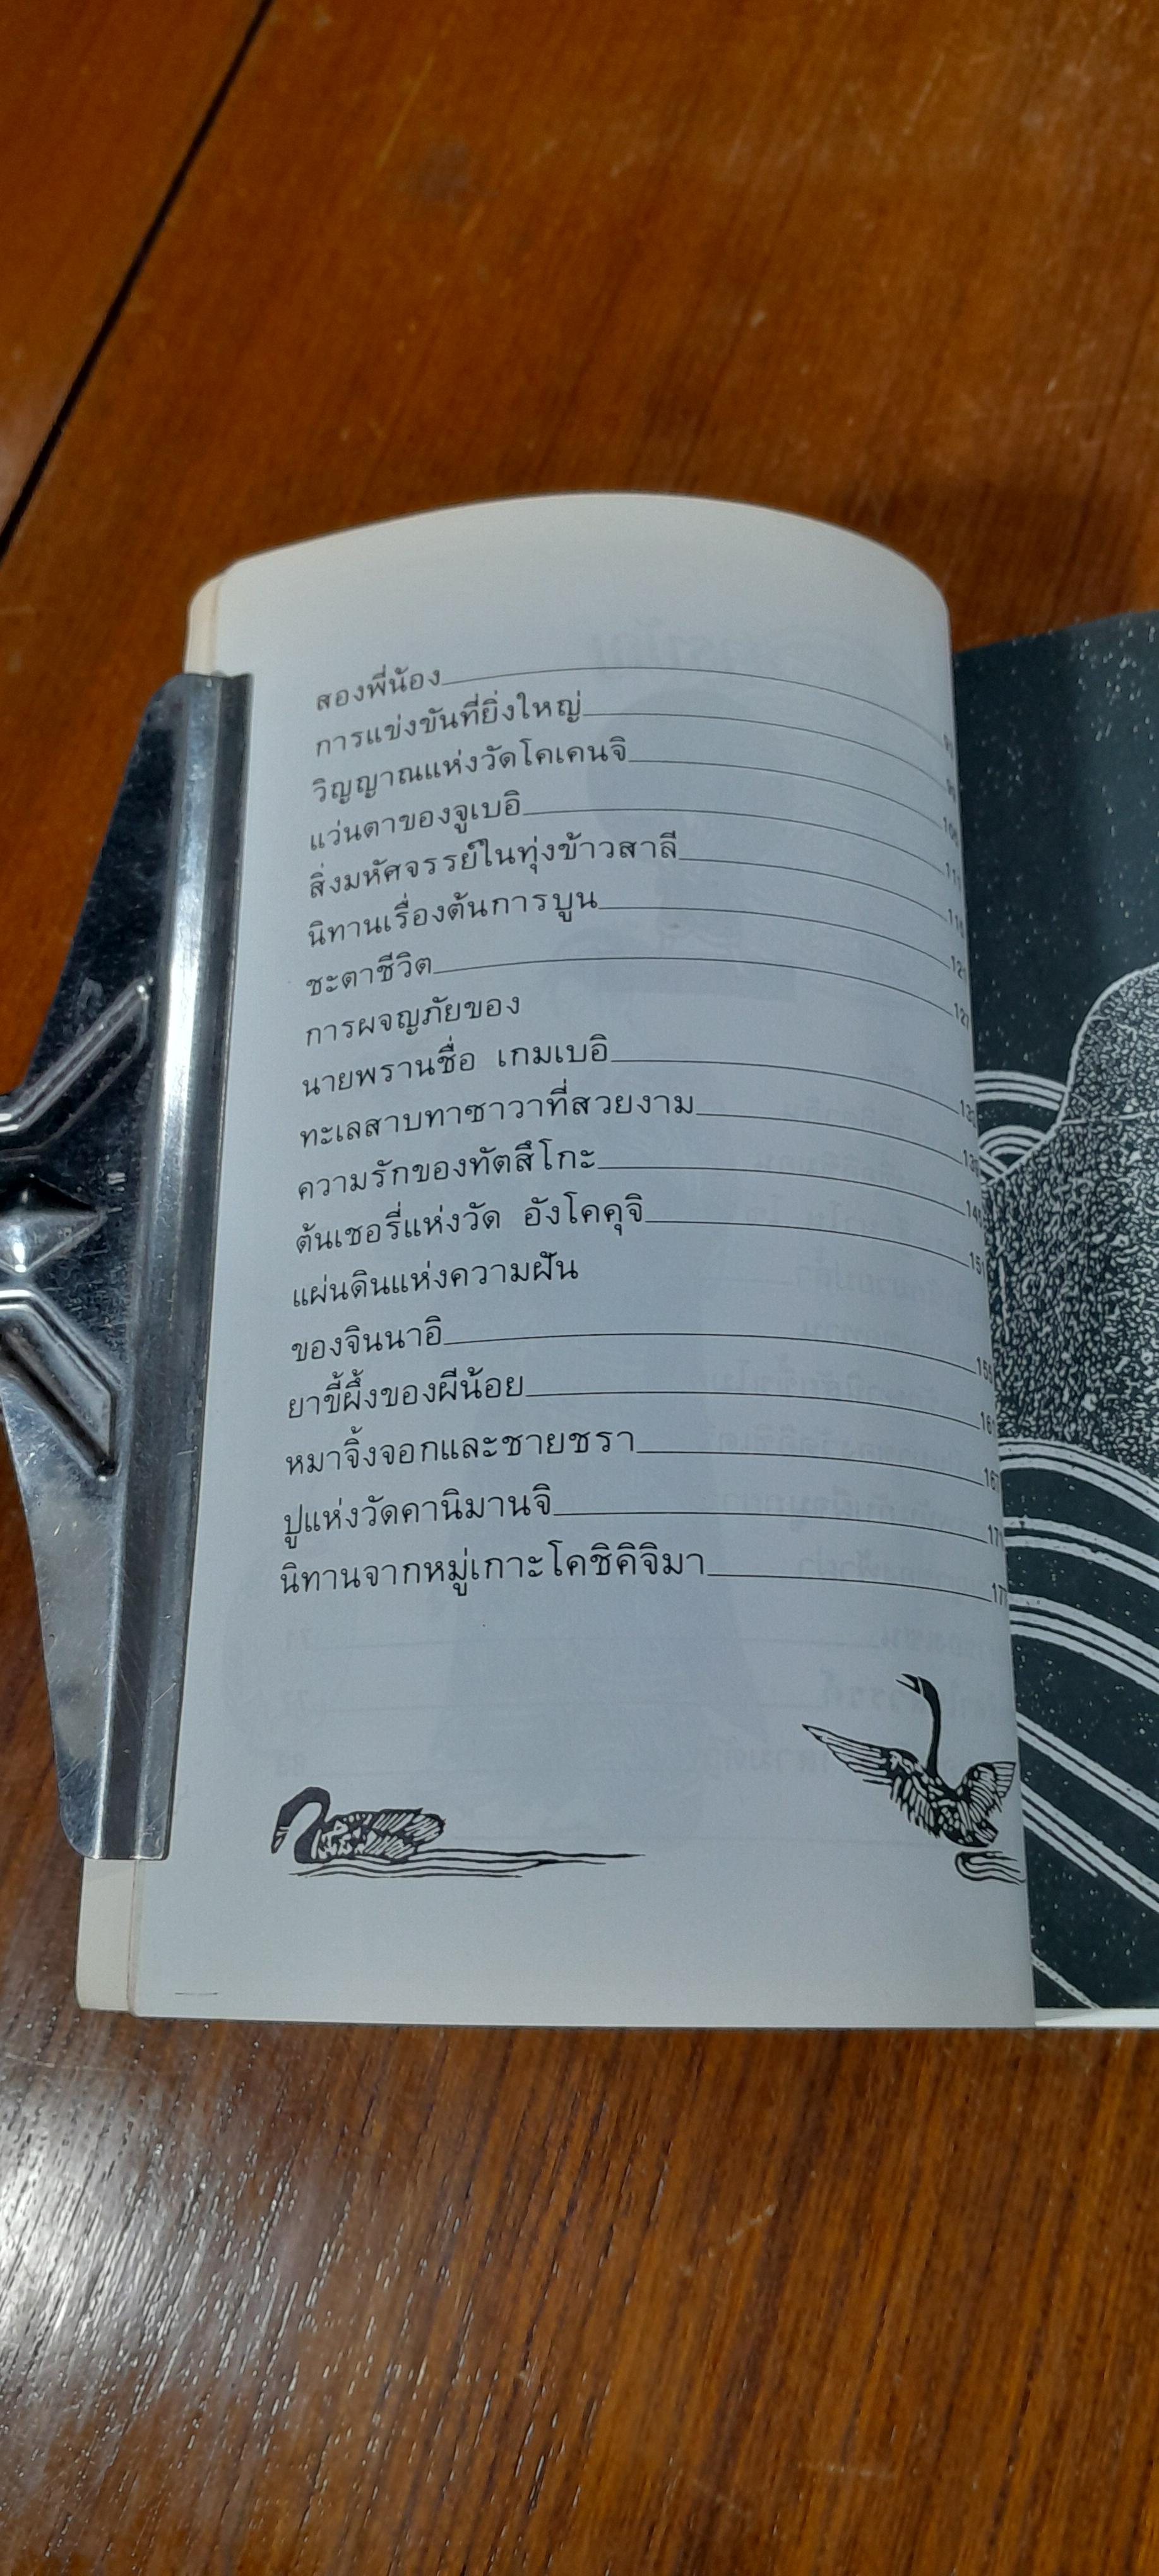 สองพี่น้อง
การแข่งขันที่ยิ่งใหญ่
วิญญาณแห่งวัดโคเคนจิ
แว่นตาของจูเบอิ
สิ่งมหัศจรรย์ในทุ่งข้าวสาลี
นิทานเรื่องต้นการบูน
ชะตาชีวิต 127
การผจญภัยของ
นายพรานชื่อ เกมเบอิ
ทะเลสาบทาซาวาที่สวยงาม
ความรักของทัตสึโกะ
ต้นเชอรี่แห่งวัด อังโคคุจิ 151
แผ่นดินแห่งความฝัน
ของจินนาอิ
ยาขี้ผึ้งของผีน้อย
หมาจิ้งจอกและชายชรา
ปูแห่งวัดคานิมานจิ
นิทานจากหมู่เกาะโคชิคิจิมา